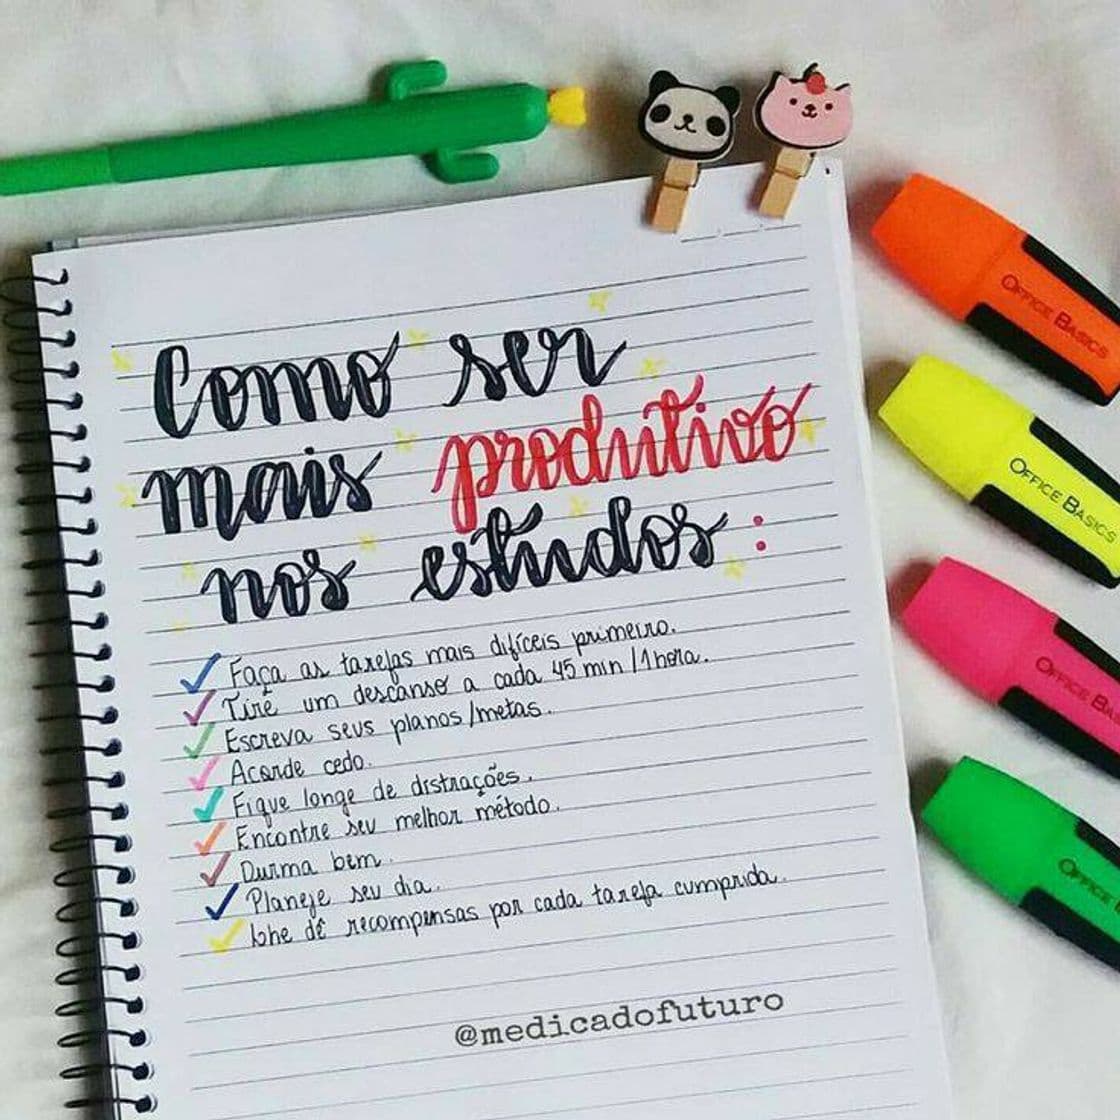 Como ser
mais produtivo
nos estudos:
Faça as tarefas mais difíceis primeiro.
Tire um descanso a cada 45 min/1 hora.
Escreva seus planos/metas.
Acorde cedo.
Fique longe de distrações.
Encontre seu melhor método.
Durma bem.
Planeje seu dia.
lhe dê recompensas por cada tarefa cumprida.
@medicadofuturo
OFFICE BASICS
OFFICE BASICS
OFFICE
OFFICE